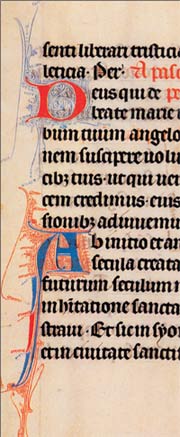 senti liberari tristici
leticia. Per. A pasc
Deus qui de pe
beate marie u
bum tuum angelo
nem suscipere uolu
cibz tuis. ut qui uer
cem credimus. eius
sionibz adiuuemu
Ab initio et an
secula creata
futurum seculum n
in hitatione sancta
straui. Et sic in syon
et in ciuitate sancti